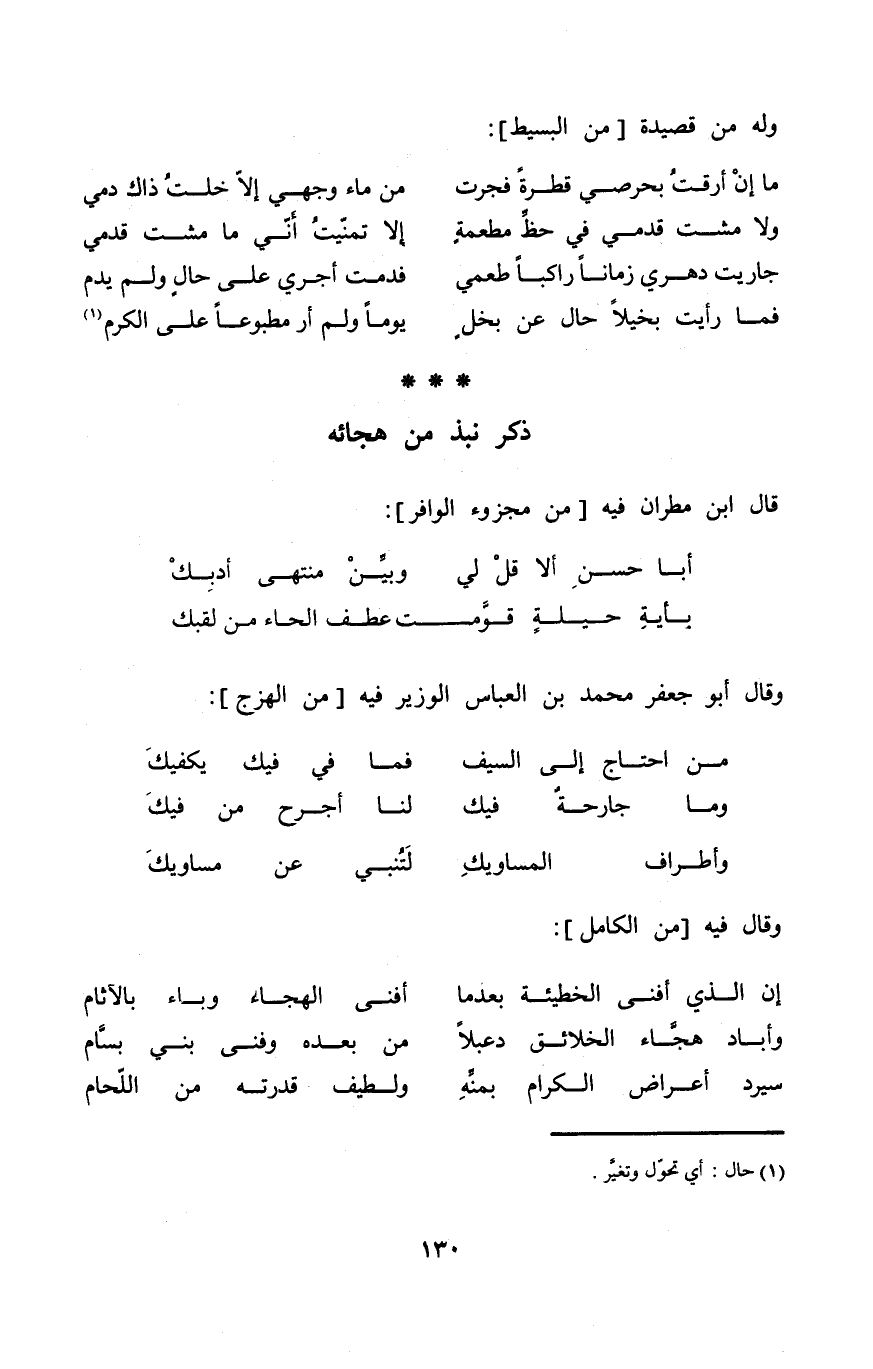 وله من قصيدة [ من البسيط]:
ما إنْ أرقتُ بحرصي قطرةً فجرت من ماء وجهي إلاّ خلتُ ذاك دمي
ولا مشت قدمي في حظِّ مطعمةٍ إلا تمنّيتُ أنّي ما مشت قدمي
جاريت دهري زماناً راكباً طعمي فدمت أجري على حالٍ ولم يدم
فما رأيت بخيلاً حال عن بخلٍ يوماً ولم أر مطبوعاً على الكرم(١)
* * *
ذكر نبذ من هجائه
قال ابن مطران فيه [ من مجزوء الوافر]:
أبا حسنِ ألا قلْ لي وبيِّنْ منتهى أدبِكْ
بأيةِ حيلةٍ قوَّمت عطف الحاء من لقبك
وقال أبو جعفر محمد بن العباس الوزير فيه [ من الهزج ]:
من احتاج إلى السيف فما في فيك يكفيكَ
وما جارحةٌ فيك لنا أجرح من فيكَ
وأطراف المساويكِ لَتُنبي عن مساويكَ
وقال فيه [من الكامل ]:
إن الذي أفنى الخطيئة بعدما أفنى الهجاء وباء بالآثام
وأباد هجَّاء الخلائق دعبلاً من بعده وفنى بني بسَّام
سيرد أعراض الكرام بمنِّهِ ولطيف قدرته من اللّحام
(١) حال : أي تحوّل وتغيَّر .
١٣٠